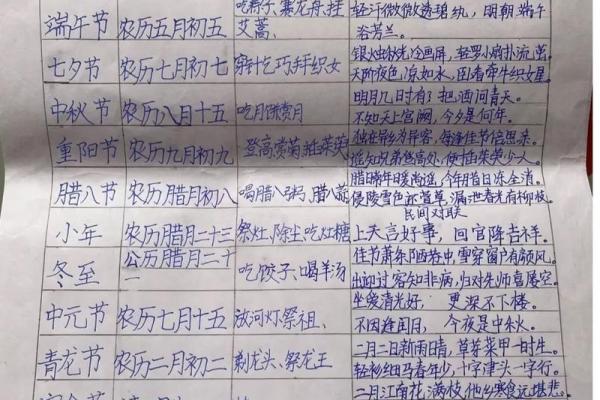 吃粽子、赛龙舟、挂
轻汗微微透碧纨，明朝端午
端午节 农历五月初五 艾蒿、
浴芳兰。
七夕节 农历七月初七 穿针乞巧拜织女
银火虫秋光冷画屏，轻罗小扇扑流萤。
天阶夜色凉如水，卧看牵牛织女星
中秋节 农历八月十五 吃月饼赏月
明月几时有？把酒问青天。
不知天上宫阙，今夕是何年。
重阳节 农历九月初九 登高赏菊插茱萸
独在异乡为异客，每逢佳节倍思亲。
遥知兄弟登高处，便插茱萸少一人。
腊八节 农历腊月初八 喝腊八粥、腊八蒜
腊日常年暖尚遥，今年腊日冻全消。
侵陵雪色还萱草，漏泄春光有柳枝。
民间对联
小年 农历腊月二十三 祭灶、除尘、吃灶糖
上天言好事，回宫降吉祥。
冬至 公历腊月二十一 吃饺子、喝羊汤
佳节萧条陋巷中，雪穿窗户有颜风。
出迎过客知非病，归对先师喜屡空。
中元节 农历七月十五 放河灯祭祖、
坐爱清光好，更深不下楼。
不因逢闰月，今夜是中秋。
青龙节 农历二月初二 剃龙头、祭龙王
二月二日新雨晴，草芽菜甲一时生。
轻衫细马春年少，十字津头一字行。
二月江南花满枝，他乡寒食远堪悲。